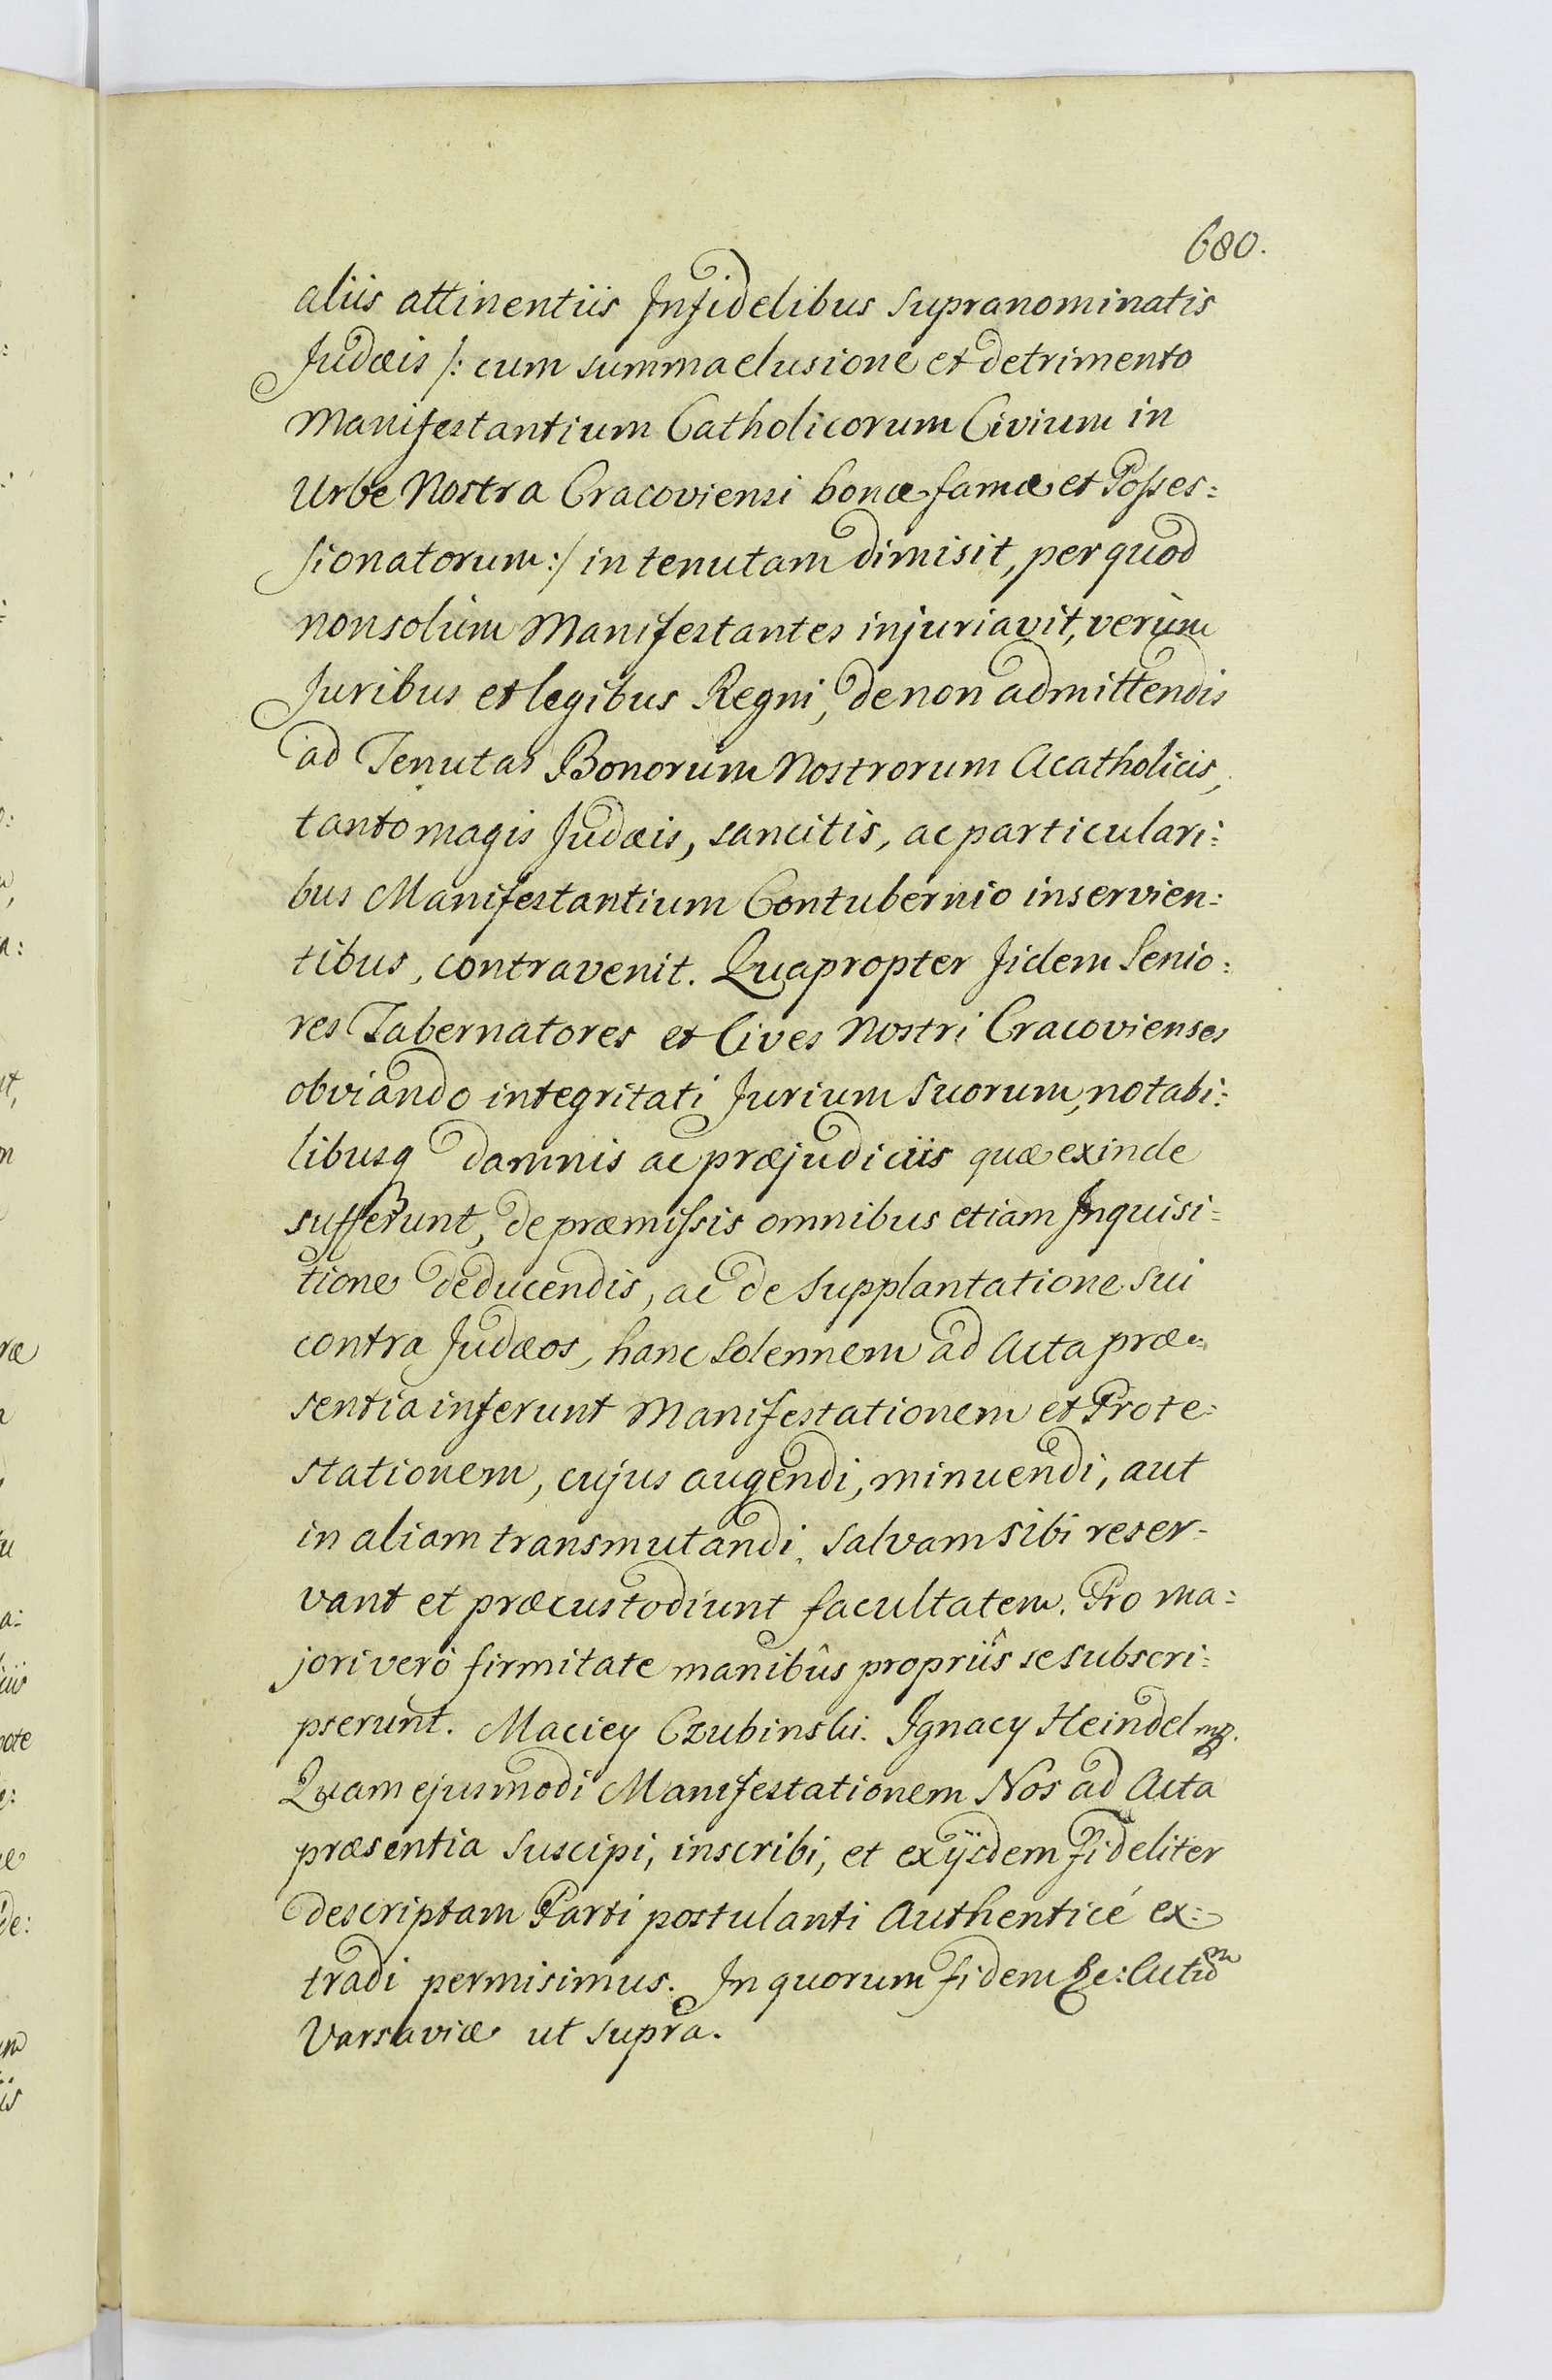 680.
aliis attinentiis Infidelibus supranominatis
Judæis /: cum summa elusione et detrimento
Manifestantium Catholicorum Civium in
Urbe Nostra Cracoviensi bonæ famæ et Posses:
sionatorum :/ in tenutam dimisit, per quod
non solùm Manifestantes injuriavit, verùm
Juribus et legibus Regni, de non admittendis
ad Tenutas Bonorum Nostrorum Acatholicis,
tanto magis Judæis, sancitis, ac particulari:
bus Manifestantium Contubernio inservien:
tibus, contravenit. Quapropter Jidem Senio:
res Tabernatores et Cives Nostri Cracovienses
obviando integritati Jurium suorum, notabi:
libusq damnis ac præjudiciis quæ exinde
sufferunt, de præmissis omnibus etiam Inquisi:
tione deducendis, ac de supplantatione sui
contra Judæos, hanc solennem ad Acta præ:
sentia inferunt Manifestationem et Prote:
stationem, cujus augendi, minuendi, aut
in aliam transmutandi, salvam sibi reser:
vant et præcustodiunt facultatem. Pro ma:
jori verò firmitate manibûs propriîs se subscri:
pserunt. Maciey Czubinski. Ignacy Heindel mp.
Quam ejusmodi Manifestationem Nos ad Acta
præsentia suscipi, inscribi, et exÿsdem fideliter
descriptam Parti postulanti Authenticé ex:
tradi permisimus. In quorum fidem &c: Actũ
Varsaviæ ut supra.